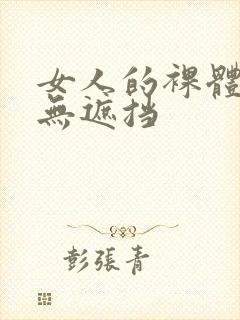 女人的裸體
無遮挡
彭張青